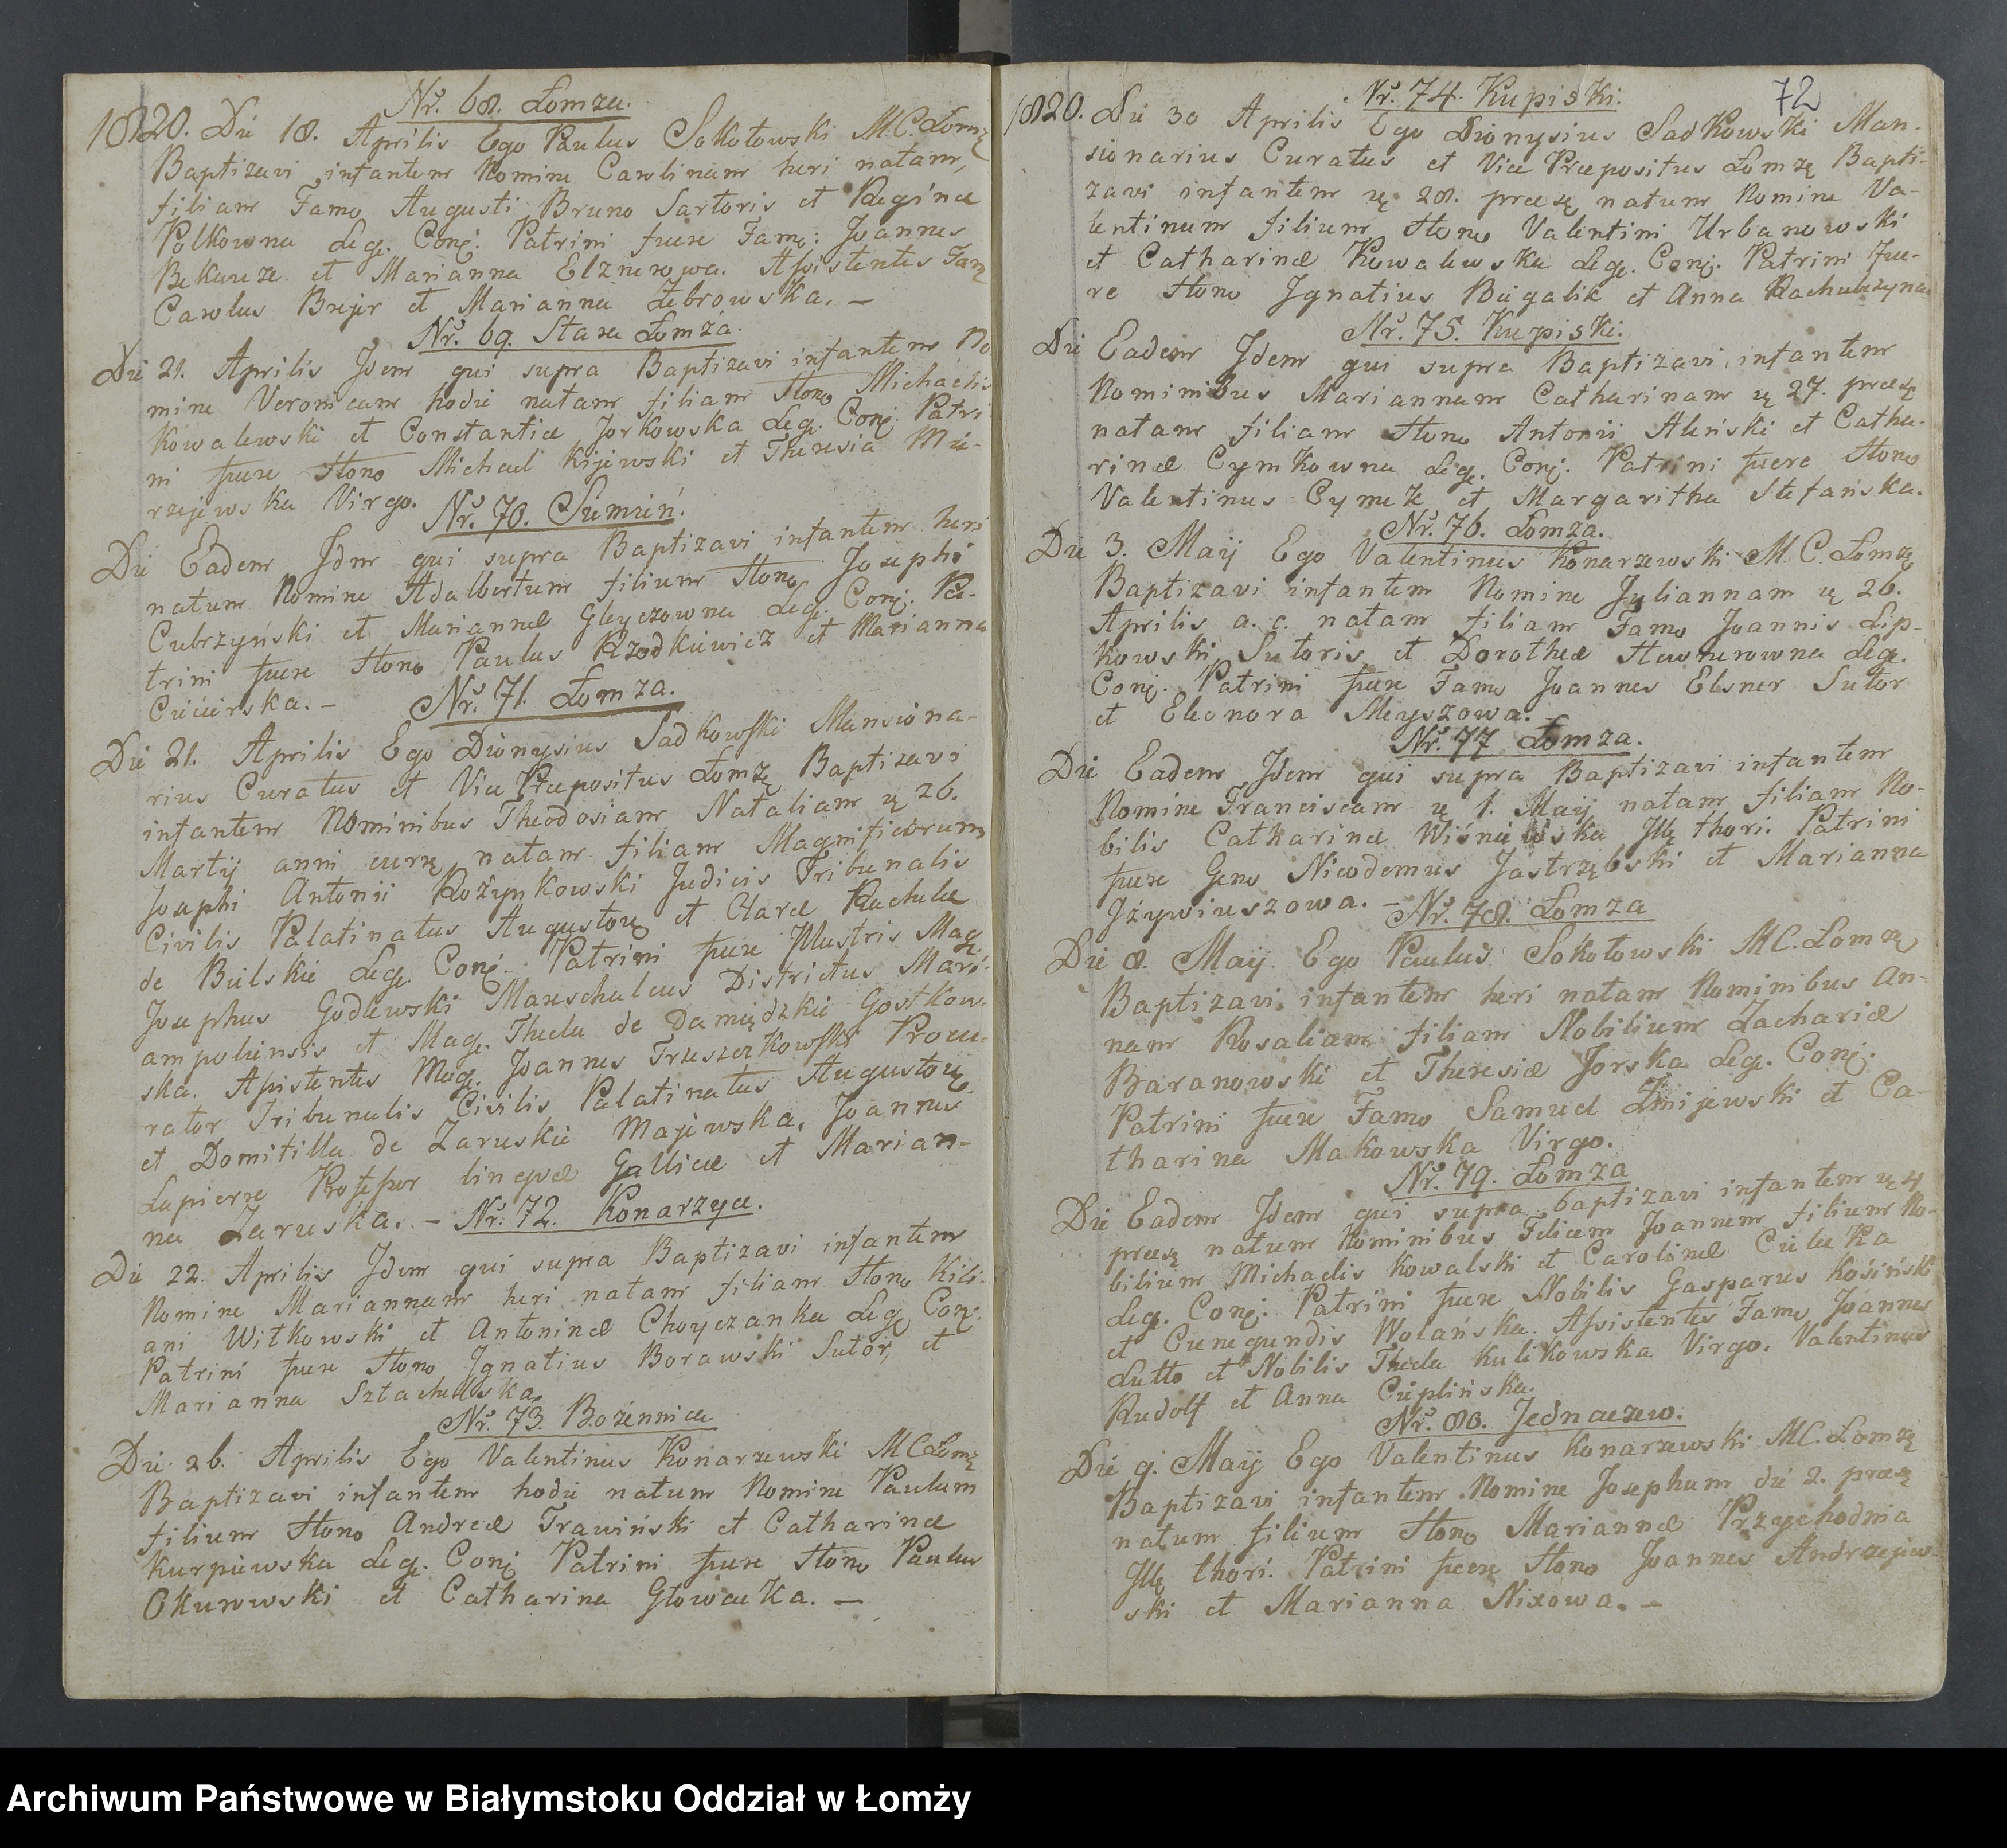 Nr. 68. Łomza.
1820. Die 18. Aprilis Ego Paulus Sokołowski M.C. Łomzę
Baptizavi infantem Nomine Carolinam heri natam,
filiam Famo Augusti Bruno Sartoris et Reginæ
Polkowna Leg. Conj. Patrini fuere Famo: Joannes
Bekarze et Marianna Elznerowa. Assistentes Famo
Carolus Brejer et Marianna Zebrowska. —
Nr. 69. Stara Łomża.
Die 21. Aprilis Idem qui supra Baptizavi infantem No
mine Veronicam hodie natam filiam Hono Michaelis
Kowalewski et Constantiæ Jorkowska Leg. Conj. Patri
ni fuere Hono Michael Kijewski et Theresia Mie-
rzejewska Virgo.
Nr. 70. Siemień.
Die Eadem Idem qui supra Baptizavi infantem heri
natum Nomine Adalbertum filium Hono Josephi
Cubrzyński et Mariannæ Gleyczowna Leg. Conj. Pa-
trini fuere Hono Paulus Rzodkiewicz et Marianna
Ciecierska. —
Nr. 71. Łomza.
Die 21. Aprilis Ego Dionysius Sadkowski Mansiona-
rius Curatus et Vice Præpositus Łomzę Baptizavi
infantem Nominibus Theodosiam Nataliam ę 26.
Martij anni currę natam filiam Magnificorum
Josephi Antonii Rożynkowski Judicis Tribunalis
Civilis Palatinatus Augustoę et Claræ Rachelæ
de Bielskie Leg. Conj. Patrini fuere Illustris Mag.
Josephus Godlewski Mareschalcus Districtus Mari-
ampolinsis et Mag. Thecla de Damięckie Gostkow-
ska. Assistentes Mag. Joannes Truszczkowski Procu-
rator Tribunalis Civilis Palatinatus Augustoę
et Domitilla de Zaruskie Majewska. Joannes
Lapierre Professor linguæ Gallicæ et Marian-
na Zaruska. —
Nr. 72. Konarzyce.
Die 22. Aprilis Idem qui supra Baptizavi infantem
Nomine Mariannam heri natam filiam Hono Kili-
ani Witkowski et Antoninæ Choyczanka Leg. Conj.
Patrini fuere Hono Ignatius Borawski Sutor, et
Marianna Sztachelska.
Nr. 73. Bożennica.
Die 26. Aprilis Ego Valentinus Konarzewski M C Łomzę
Baptizavi infantem hodie natum Nomine Paulum
filium Hono Andreæ Trawiński et Catharinæ
Kurpiewska Leg. Conj. Patrini fuere Hono Paulus
Okurowski et Catharina Głowacka. —
72
Nr. 74. Kupiski.
1820. Die 30 Aprilis Ego Dionysius Sadkowski Man-
sionarius Curatus et Vice Præpositus Łomzę Bapti-
zavi infantem ę 28. præsę natum Nomine Va-
lentinum filium Hono Valentini Urbanowski
et Catharinæ Kowalewska Leg. Conj. Patrini fue-
re Hono Ignatius Biegalik et Anna Rachubzyna
Nr. 75. Kupiski.
Die Eadem Idem qui supra Baptizavi infantem
Nominibus Mariannam Catharinam ę 27. præsę
natam filiam Hono Antonii Aleński et Catha-
rinæ Cymkowna Leg. Conj. Patrini fuere Hono
Valentinus Cymek et Margaritha Stefańska.
Nr. 76. Łomza.
Die 3. Maij Ego Valentinus Konarzewski M. C. Łomzę
Baptizavi infantem Nomine Juliannam ę 26.
Aprilis a. c. natam filiam Famo Joannis Lip-
kowski Sutoris et Dorotheæ Hewnerowna Leg.
Conj. Patrini fuere Famo Joannes Elsner Sutor
et Eleonora Meyszowa. —
Nr. 77 Łomza.
Die Eadem Idem qui supra Baptizavi infantem
Nomine Franciscam ę 1. Maij natam filiam No-
bilis Catharinæ Wiśniewska Illę thori. Patrini
fuere Geno Nicodemus Jastrzębski et Marianna
Jżywiuszowa. —
Nr. 78. Łomza
Die 8. Maij Ego Paulus Sokołowski M C. Łomzę
Baptizavi infantem heri natam Nominibus An-
nam Rosaliam filiam Nobilium Zachariæ
Baranowski et Theresiæ Jorska Leg. Conj.
Patrini fuere Famo Samuel Żmijewski et Ca-
tharina Makowska Virgo.
Nr. 79. Łomza
Die Eadem Idem qui supra baptizavi infantem ę
præsę natum Nominibus Felicem Joannem filium No-
bilium Michaelis Kowalski et Carolinæ Cielecka
Leg. Conj. Patrini fuere Nobilis Gasparus Kosiński
et Cunegundis Wolańska. Assistentes Famo Joannes
Lutto et Nobilis Thecla Kulikowska Virgo. Valentinus
Rudolf et Anna Cieplińska.
Nr. 80. Jednaczew.
Die 9. Maij Ego Valentinus Konarzewski M C. Łomzę
Baptizavi infantem Nomine Josephum die 2. præsę
natum filium Hono Mariannæ Przychodnia
Illę thori. Patrini fuere Hono Joannes Andrzejew-
ski et Marianna Nixowa. —
Archiwum Państwowe w Białymstoku Oddział w Łomży